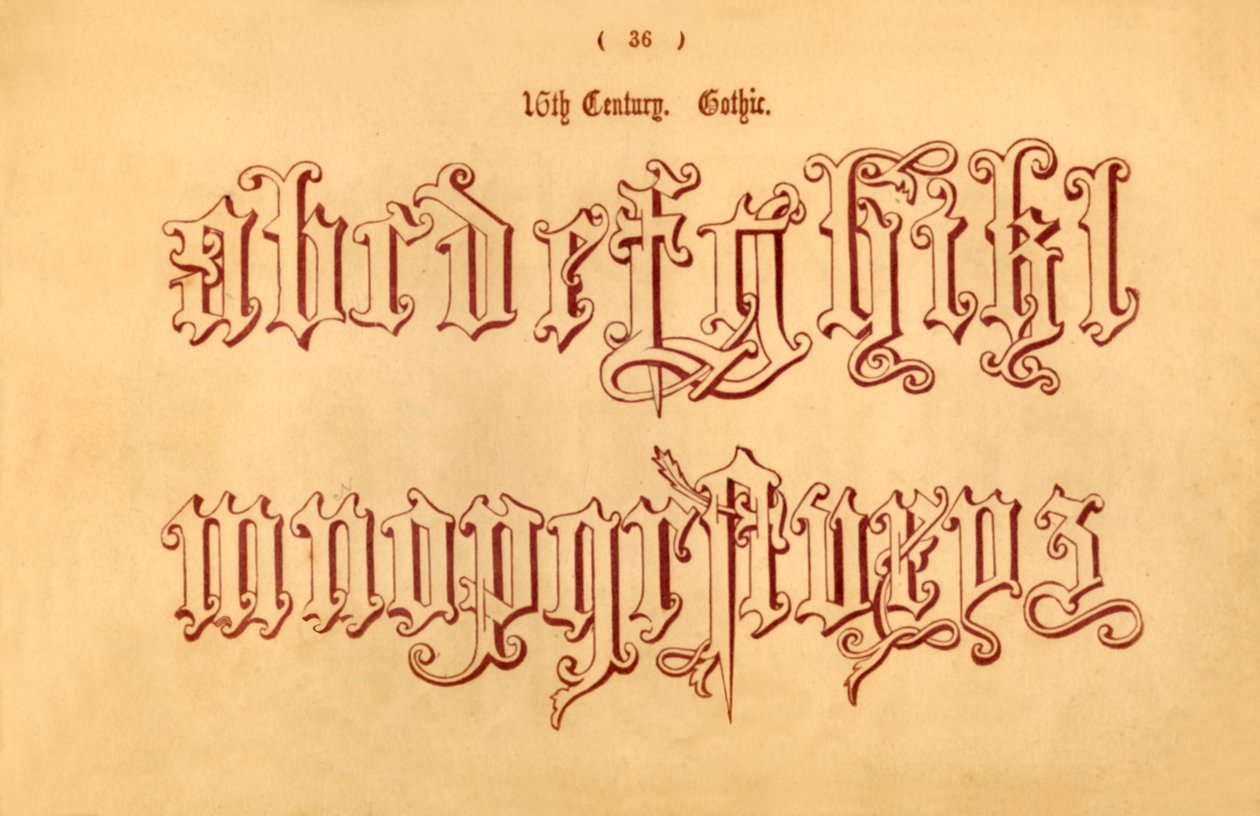 ( 36 )
16th Century. Gothic.
abcdefghikl
mnopqrſtvxyz